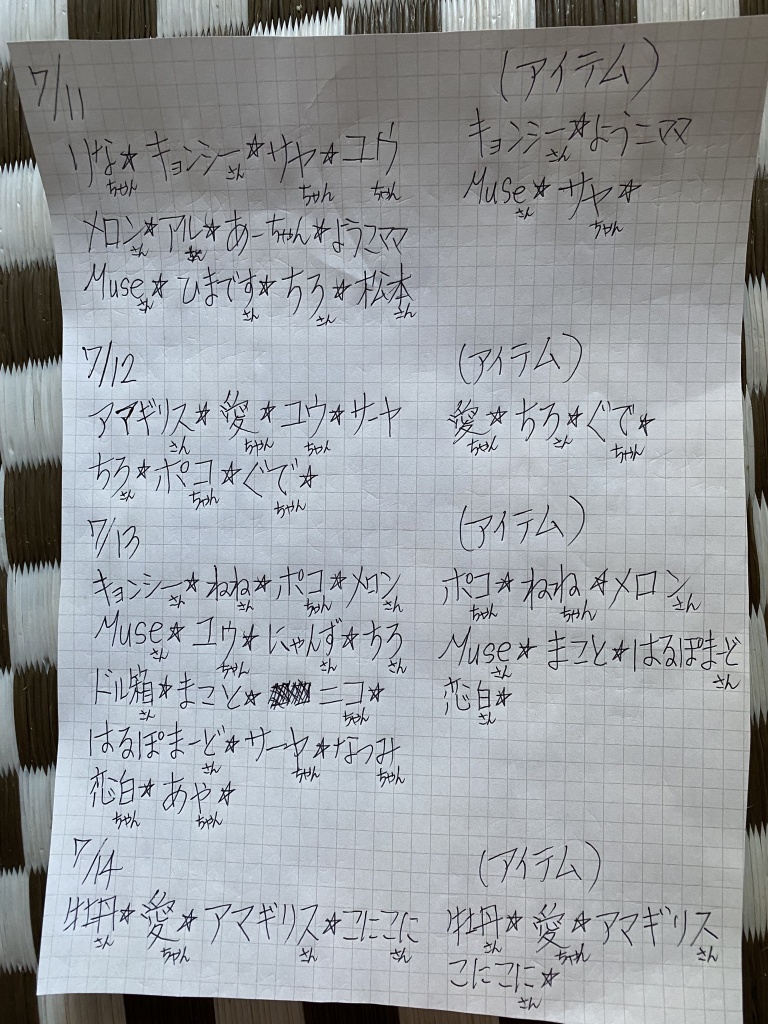 7/11
りな☆キョンシー☆サヤ☆ユウ
ちゃん さん ちゃん ちゃん
メロン☆アル☆あーちゃん☆ようこママ
さん
Muse☆ひまです☆ちろ☆松本
さん さん さん さん
(アイテム)
キョンシー☆ようこママ
さん
Muse☆サヤ☆
さん ちゃん
7/12
アマギリス☆愛☆ユウ☆サーヤ
さん ちゃん ちゃん
ちろ☆ポコ☆ぐで☆
さん ちゃん ちゃん
(アイテム)
愛☆ちろ☆ぐで☆
ちゃん さん ちゃん
7/13
キョンシー☆ねね☆ポコ☆メロン
さん さん ちゃん さん
Muse☆ユウ☆にゃんず☆ちろ
さん ちゃん さん さん
ドル箱☆まこと☆ニコ☆
さん ちゃん
はるぽまーど☆サーヤ☆なつみ
さん ちゃん ちゃん
恋白☆あや☆
ちゃん ちゃん
(アイテム)
ポコ☆ねね☆メロン
ちゃん ちゃん さん
Muse☆まこと☆はるぽまーど
さん さん
恋白☆
さん
7/14
牡丹☆愛☆アマギリス☆こにこに
さん ちゃん さん さん
(アイテム)
牡丹☆愛☆アマギリス
さん ちゃん さん
こにこに☆
さん